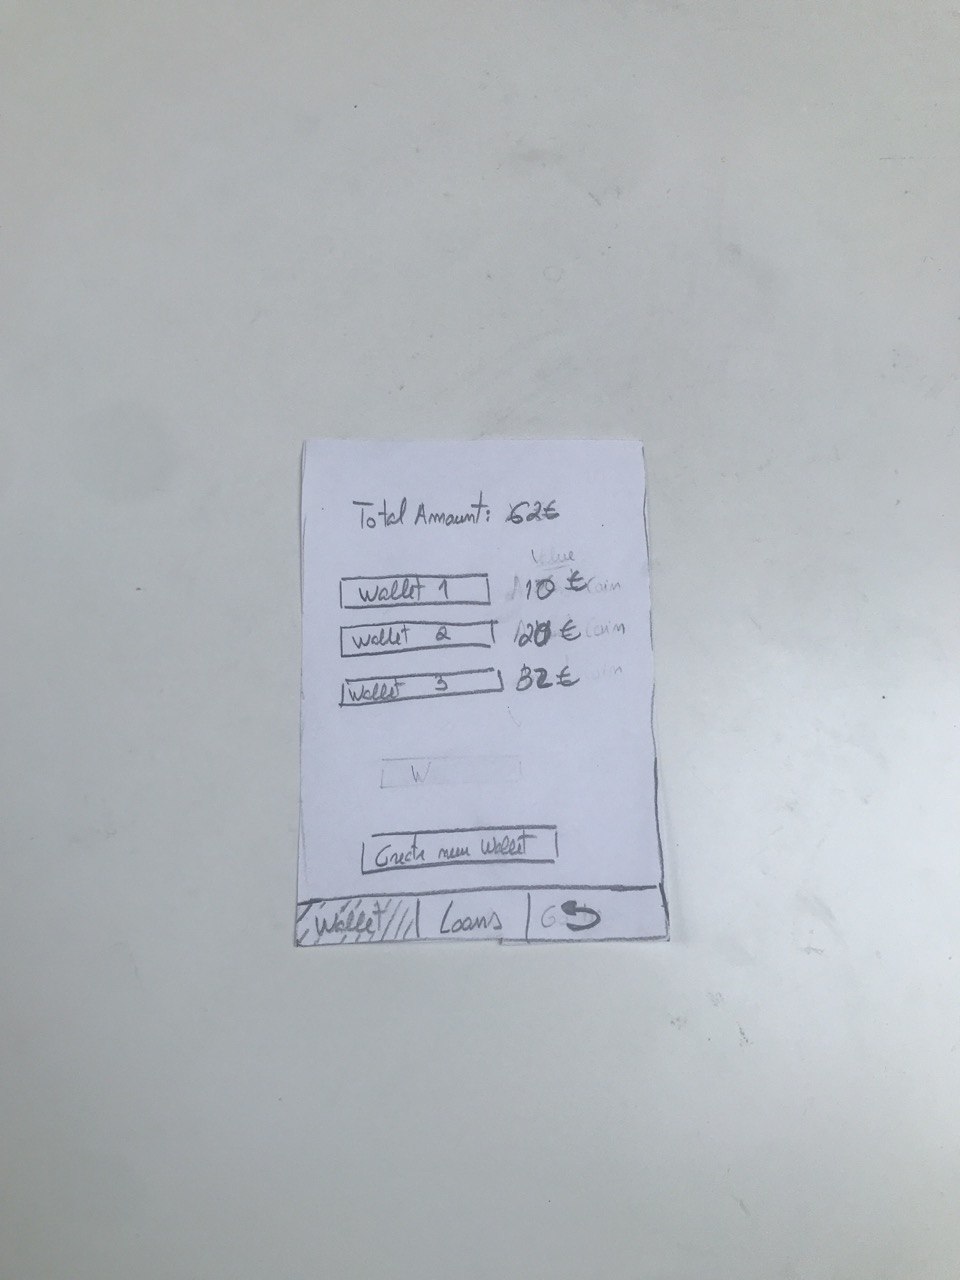 Total Amount: 62€
Value
Wallet 1 10 € Coin
Wallet 2 20 € Coin
Wallet 3 32 € Coin
W
Create new Wallet
Wallet Loans